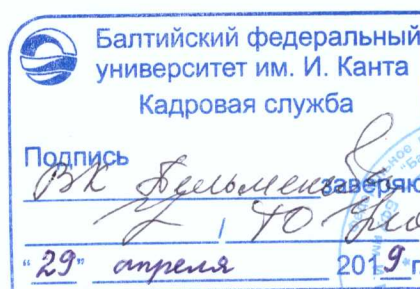 Балтийский федеральный
университет им. И. Канта
Кадровая служба
Подпись
ВК заверяю
/
"29" апреля 2019 г